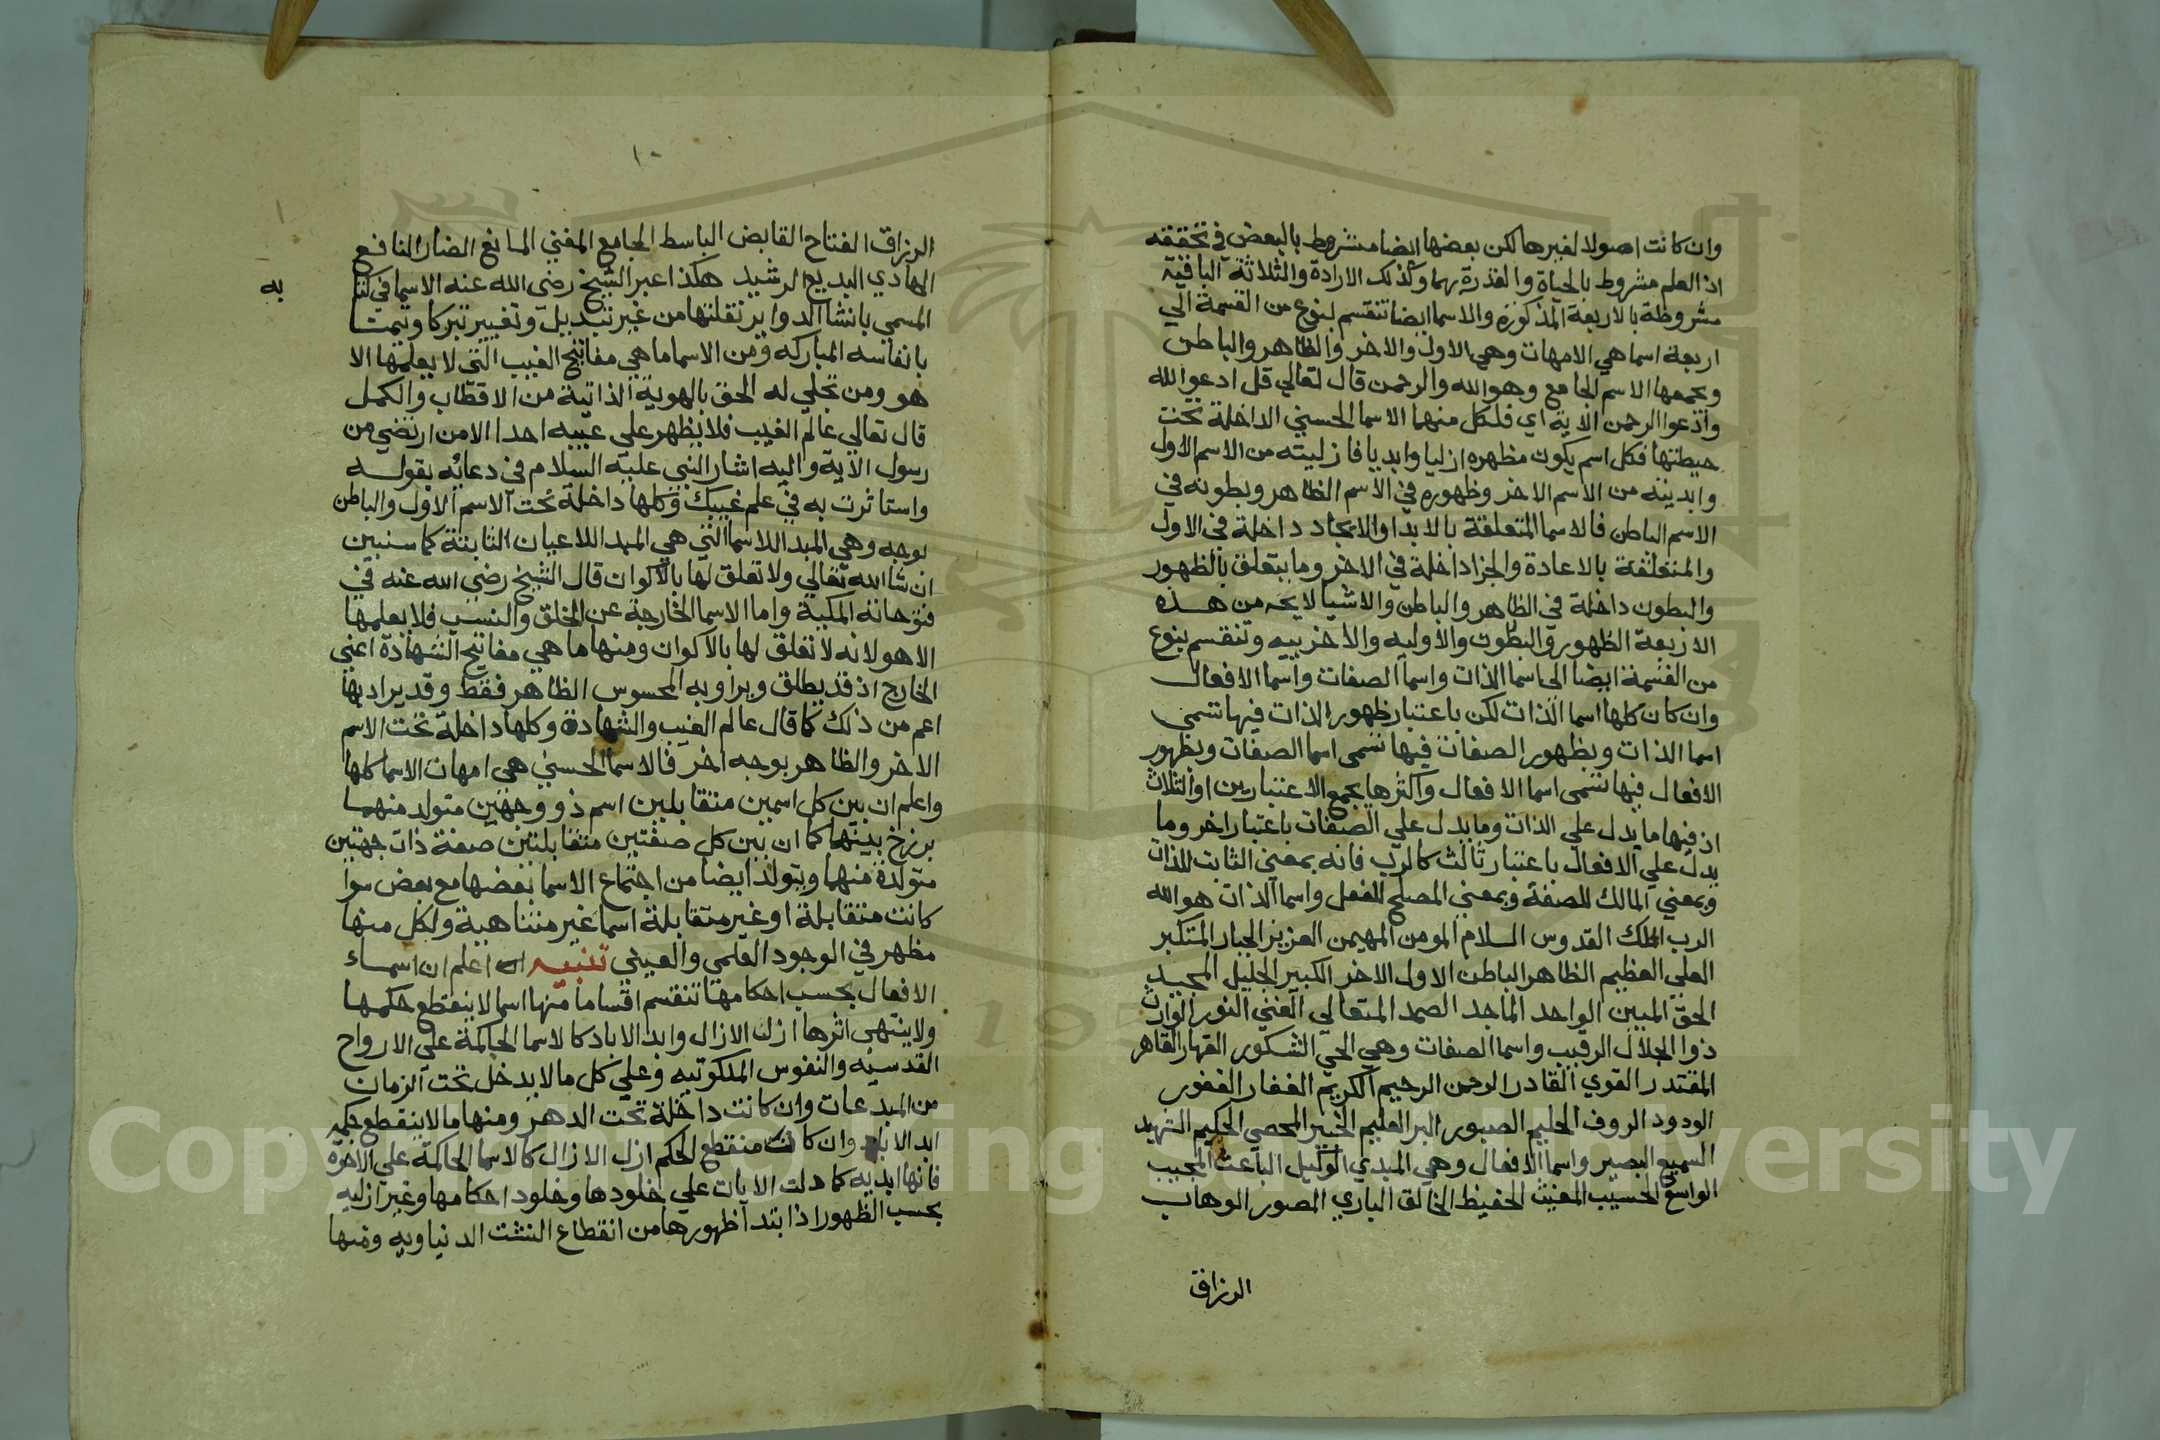 وان كانت اصولا لغيرها لكن بعضها ايضا مشروط بالبعض في تحققه
اذ العلم مشروط بالحياة والقدرة بهما وكذلك الارادة والثلاثة الباقية
مشروطة بالاربعة المذكورة والاسما ايضا تنقسم بنوع من القسمة الي
اربعة اسما هي الامهات وهي الاول والاخر والظاهر والباطن
ويجمعها الاسم الجامع وهو الله والرحمن قال تعالي قل ادعوا الله
وادعوا الرحمن الاية اي فلكل منهما الاسما الحسني الداخلة تحت
حيطتها فكل اسم يكون مظهره ازليا وابديا فازليته من الاسم الاول
وابديته من الاسم الاخر وظهوره في الاسم الظاهر وبطونه في
الاسم الباطن فالاسما المتعلقة بالابدا والايجاد داخلة في الاول
والمتعلقة بالاعادة والجزا داخلة في الاخر وما يتعلق بالظهور
والبطون داخلة في الظاهر والباطن والاشيا لا يخ من هذه
الاربعة الظهور والبطون والاوليه والاخرييه وتنقسم بنوع
من القسمة ايضا الي اسما الذات واسما الصفات واسما الافعال
وان كان كلها اسما الذات لكن باعتبار ظهور الذات فيها تسمي
اسما الذات وبظهور الصفات فيها تسمي اسما الصفات وبظهور
الافعال فيها تسمي اسما الافعال واكثرها يجمع الاعتبارين او الثلاث
اذ فيها ما يدل علي الذات وما يدل علي الصفات باعتبار اخر وما
يدل علي الافعال باعتبار ثالث كالرب فانه بمعني الثابت للذات
وبمعني المالك للصفة وبمعني المصلح للفعل واسما الذات هو الله
الرب الملك القدوس السلام المومن المهيمن العزيز الجبار المتكبر
العلي العظيم الظاهر الباطن الاول الاخر الكبير الجليل المجيد
الحق المبين الواحد الماجد الصمد المتعالي الغني النور الوارث
ذوا الجلال الرقيب واسما الصفات وهي الحي الشكور القهار القاهر
المقتدر القوي القادر الرحمن الرحيم الكريم الغفار الغفور
الودود الروف الحليم الصبور البر العليم الخبير المحصي الحكيم الشهيد
السميع البصير واسما الافعال وهي المبدي الوكيل الباعث المجيب
الواسع الحسيب المقيت الحفيظ الخالق الباري المصور الوهاب
الرزاق
١٠
الرزاق الفتاح القابض الباسط الجامع المغني المانع الضار النافع
الهادي البديع الرشيد هكذا عبر الشيخ رضي الله عنه الاسما في كتا
به
المسمي بانشا الدواير نقلتها من غير تبديل وتغيير تبركا وتيمنا
بانفاسه المباركه ومن الاسما ما هي مفاتيح الغيب التي لا يعلمها الا
هو ومن تجلي له الحق بالهوية الذاتية من الاقطاب والكمل
قال تعالي عالم الغيب فلا يظهر علي غيبه احدا الا من ارتضي من
رسول الاية واليه اشار النبي عليه السلام في دعائه بقوله
واستاثرت به في علم غيبك وكلها داخلة تحت الاسم الاول والباطن
بوجه وهي المبدا للاسما التي هي المبدا للاعيان الثابتة كما سنبين
ان شا الله تعالي ولا تعلق لها بالاكوان قال الشيخ رضي الله عنه في
فتوحاته المكية واما الاسما الخارجة عن الخلق والنسب فلا يعلمها
الا هو لانه لا تعلق لها بالاكوان ومنها ما هي مفاتيح الشهادة اعني
الخارج اذ قد يطلق ويراد به المحسوس الظاهر فقط وقد يراد بها
اعم من ذلك كما قال عالم الغيب والشهادة وكلها داخلة تحت الاسم
الاخر والظاهر بوجه اخر فالاسما الحسني هي امهات الاسما كلها
واعلم ان بين كل اسمين متقابلين اسم ذو وجهين متولد منهما
برزخ بينهما كما ان بين كل صفتين متقابلتين صفة ذات جهتين
متولدة منهما ويتولد ايضا من اجتماع الاسما بعضها مع بعض سوا
كانت متقابلة او غير متقابلة اسما غير متناهية ولكل منها
مظهر في الوجود العلمي والعيني تنبيه اعلم ان اسماء
الافعال بحسب احكامها تنقسم اقساما منها اسما لا ينقطع حكمها
ولا ينتهي اثرها ازل الازال وابد الاباد كالاسما الحاكمة علي الارواح
القدسيه والنفوس الملكوتيه وعلي كل ما لا يدخل تحت الزمان
من المبدعات وان كانت داخلة تحت الدهر ومنها ما لا ينقطع حكمه
ابد الاباد وان كانت منقطع الحكم ازل الازال كالاسما الحاكمة علي الاخرة
فانها ابديه كما دلت الايات علي خلودها وخلود احكامها وغير ازليه
بحسب الظهور اذ ابتدا ظهورها من انقطاع النشت الدنياويه ومنها
Copyright © King Saud University